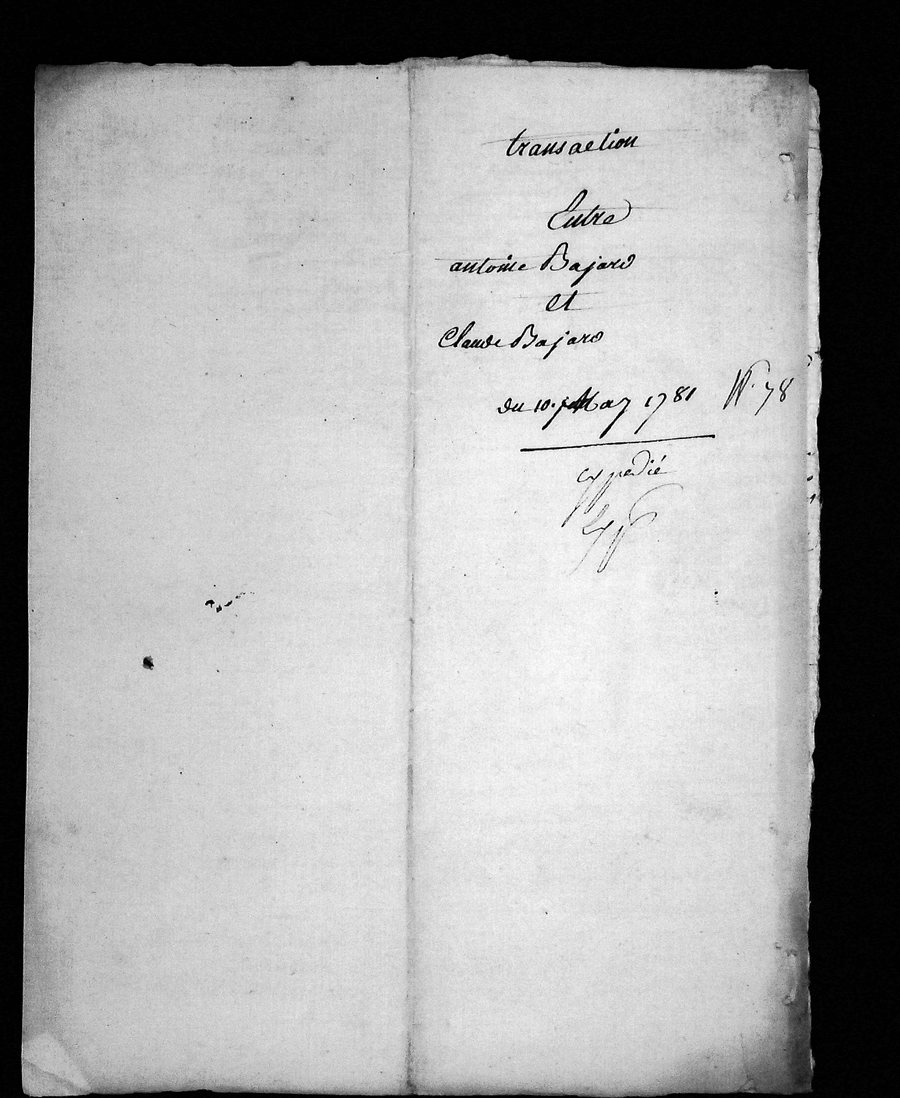 transaction
Entre
antoine Bajard
et
Claude Bajard
du 10. May 1781 N. 78
expedié